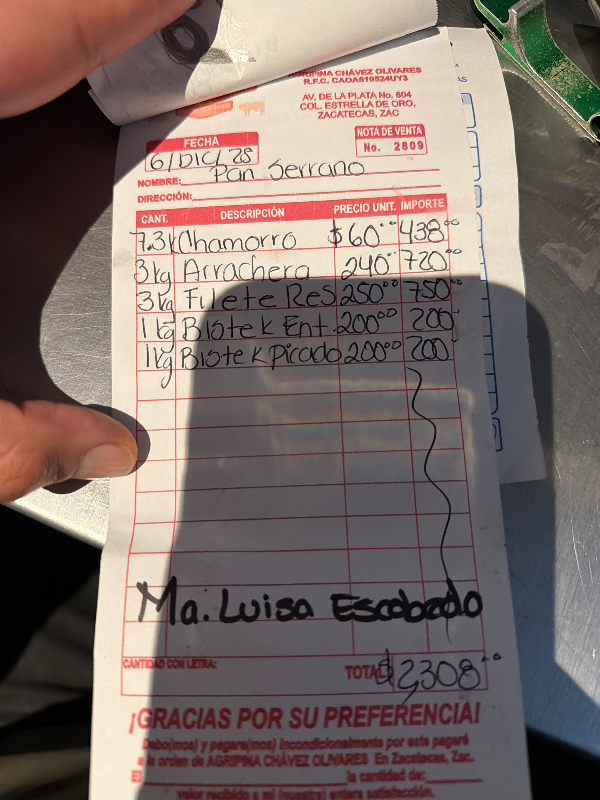 AGRIPINA CHÁVEZ OLIVARES
R.F.C. CAOA610524UY3
AV. DE LA PLATA No. 604
COL. ESTRELLA DE ORO,
ZACATECAS, ZAC
FECHA
6/DIC/25
NOTA DE VENTA
No. 2809
NOMBRE: Pan Serrano
DIRECCIÓN:
CANT. DESCRIPCIÓN PRECIO UNIT. IMPORTE
7.3k Chamorro $60.00 438.00
3kg Arrachera 240 720.00
3kg Filete Res 250.00 750.00
1kg Bistek Ent. 200.00 200
1kg Bistek Picado 200.00 200
Ma. Luisa Escobedo
CANTIDAD CON LETRA: TOTAL $2,308.00
¡GRACIAS POR SU PREFERENCIA!
Debo(mos) y pagare(mos) incondicionalmente por este pagaré
a la orden de AGRIPINA CHÁVEZ OLIVARES En Zacatecas, Zac.
El la cantidad de:
valor recibido a mi (nuestra) entera satisfacción.